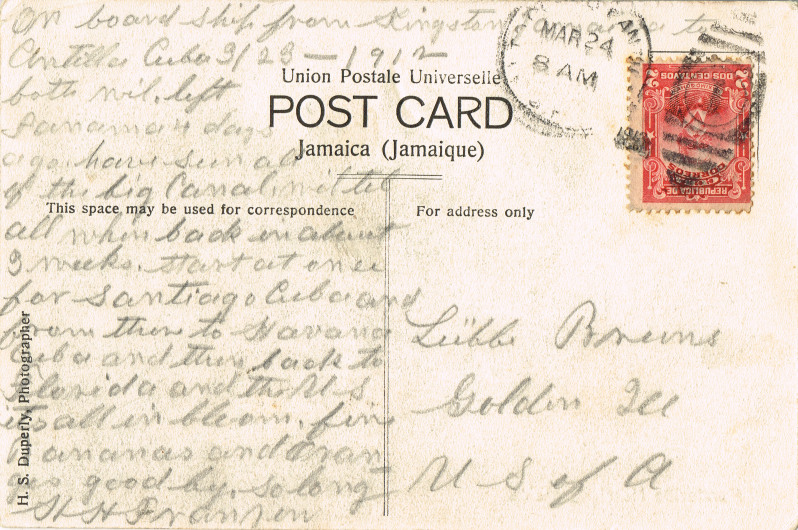 On board ship from Kingston Jamaica to
Antilla Cuba 3/23 — 1912
left
Panama 4 days
ago have seen all
of the big Canal will tel
all when back in about
3 weeks. start at once
for Santiago Cuba and
from there to Havana
Cuba and then back to
Florida and the U S
its all in bloom. fine
Bananas and Oran
ges good by. so long
H H Franzen
Union Postale Universelle
POST CARD
Jamaica (Jamaique)
This space may be used for correspondence
For address only
H. S. Duperly, Photographer
MAR 24
8 AM
1912
REPUBLICA DE
CUBA
CORREOS
2 DOS CENTAVOS 2
Lübbe Bruns
Golden Ill
U S of A